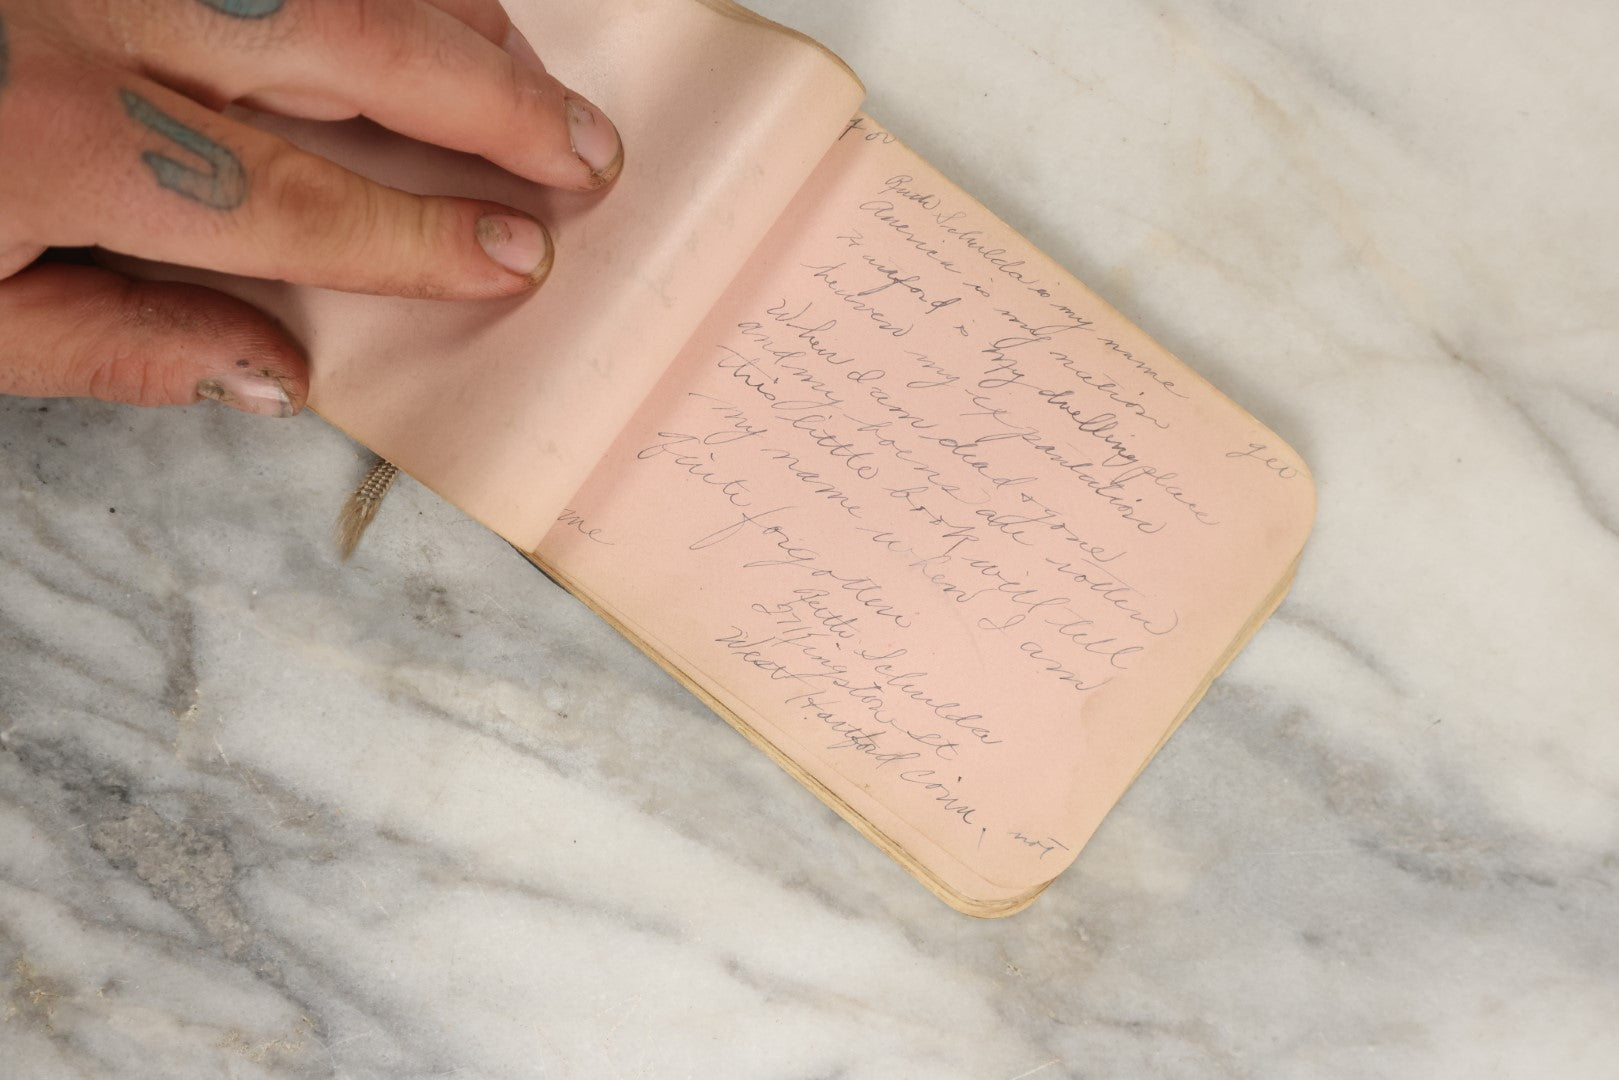 for
get
Ruth Schulda is my name
America is my nation
Hartford is my dwelling place
heaven my ex pantation
When I am dead & gone
and my bones all rotten
this little book will tell
my name when I am
quite forgotten
Ruth Schulda
27 Kingston St
West Hartford Conn.
me
not